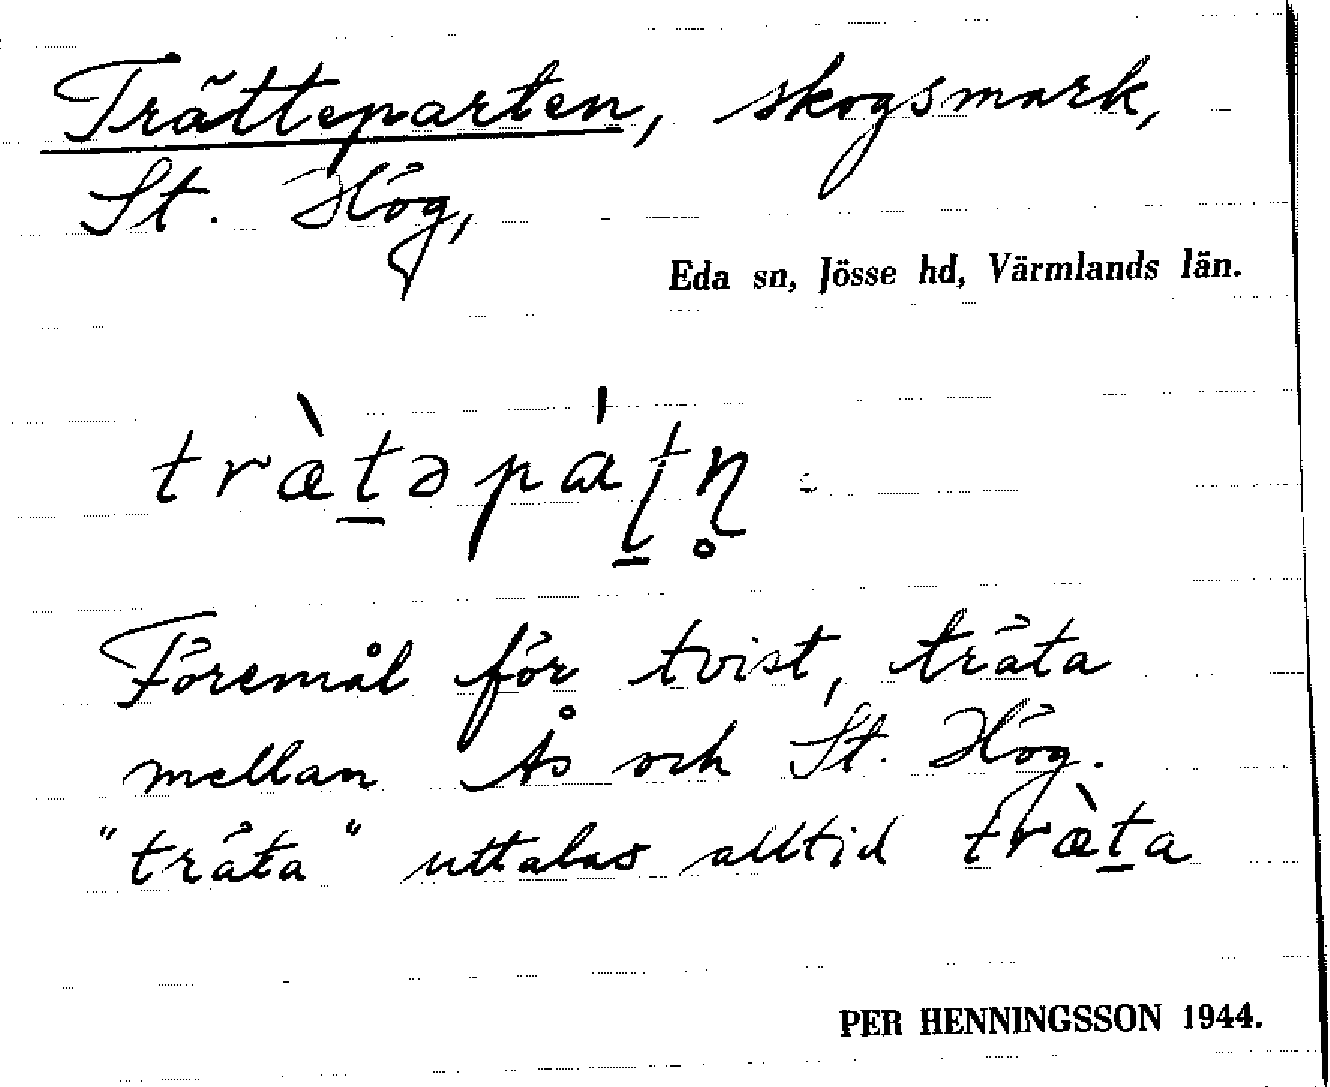 Trätteparten, skogsmark,
St. Hög,
Eda sn, Jösse hd, Värmlands län.
træ̀t̲əpáʈ̲ɳ̥
Föremål för tvist, träta
mellan Ås och St. Hög.
"träta" uttalas alltid træ̀t̲a
PER HENNINGSSON 1944.